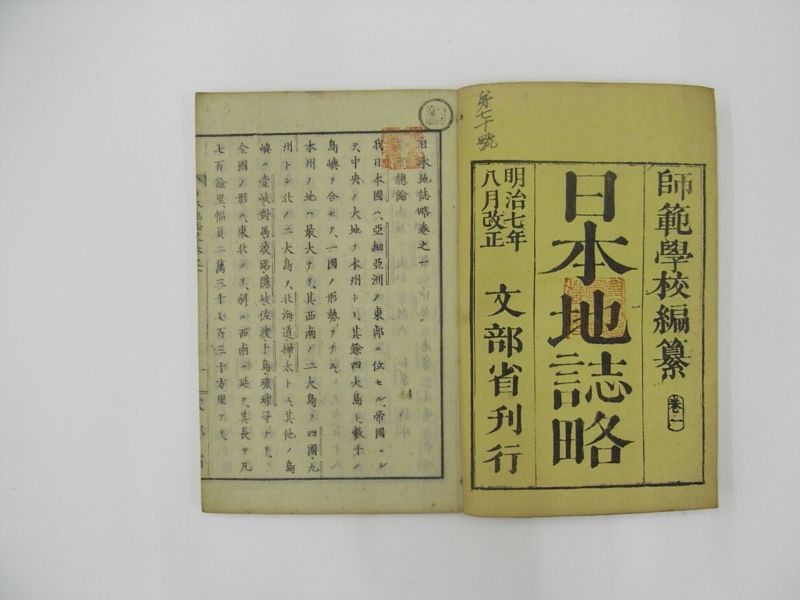 師範學校編纂 卷一
日本地誌略
明治七年
八月改正
文部省刊行
第七十號
日本地誌略卷之一
總論
我日本國ハ、亞細亞洲ノ東部ニ位セル、帝國ニシ
テ、中央ノ大地ヲ本州トシ、其餘四大島ト、數千ノ
島嶼ヲ合セテ、一國ノ形勢ヲナス、
本州ノ地ハ、最大ナリ、其西南ノ二大島ヲ、四國、九
州トシ、北ノ二大島ヲ、北海道樺太トス、其他ノ島
嶼ハ、壹岐、對馬、淡路、隱岐、佐渡、千島、琉球等ナリ、
全國ノ形ハ、東北ヨリ、斜ニ西南ニ延ク、其長サ凡
七百餘里、幅員二萬三千七百三十方里アリ、